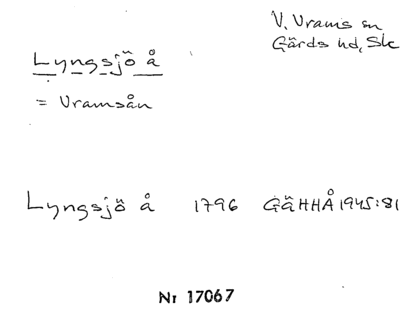 V. Vrams sn
Gärds hd, Sk
Lyngsjö å
= Vramsån
Lyngsjö å 1796 GäHHÅ 1945:81
Nr 17067